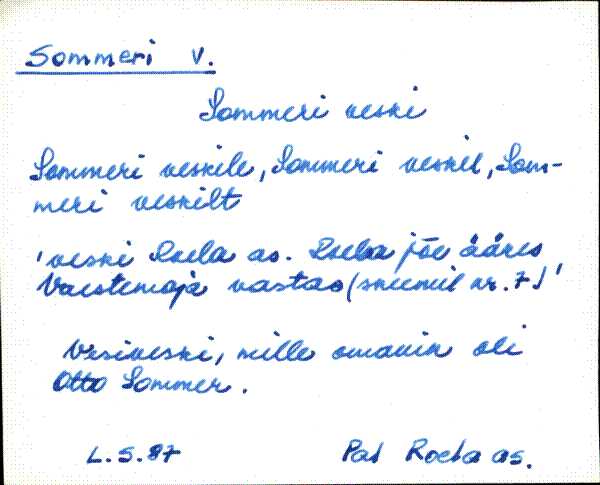 Sommeri v.
Sommeri veski
Sommeri veskile, Sommeri veskil, Som-
meri veskilt
'veski Roela as. Roela jõe ääres
Vaestemaja vastas (skeemil nr. 7.)'
Vesiveski, mille omanik oli
Otto Sommer.
L.S. 87 Pat Roela as.